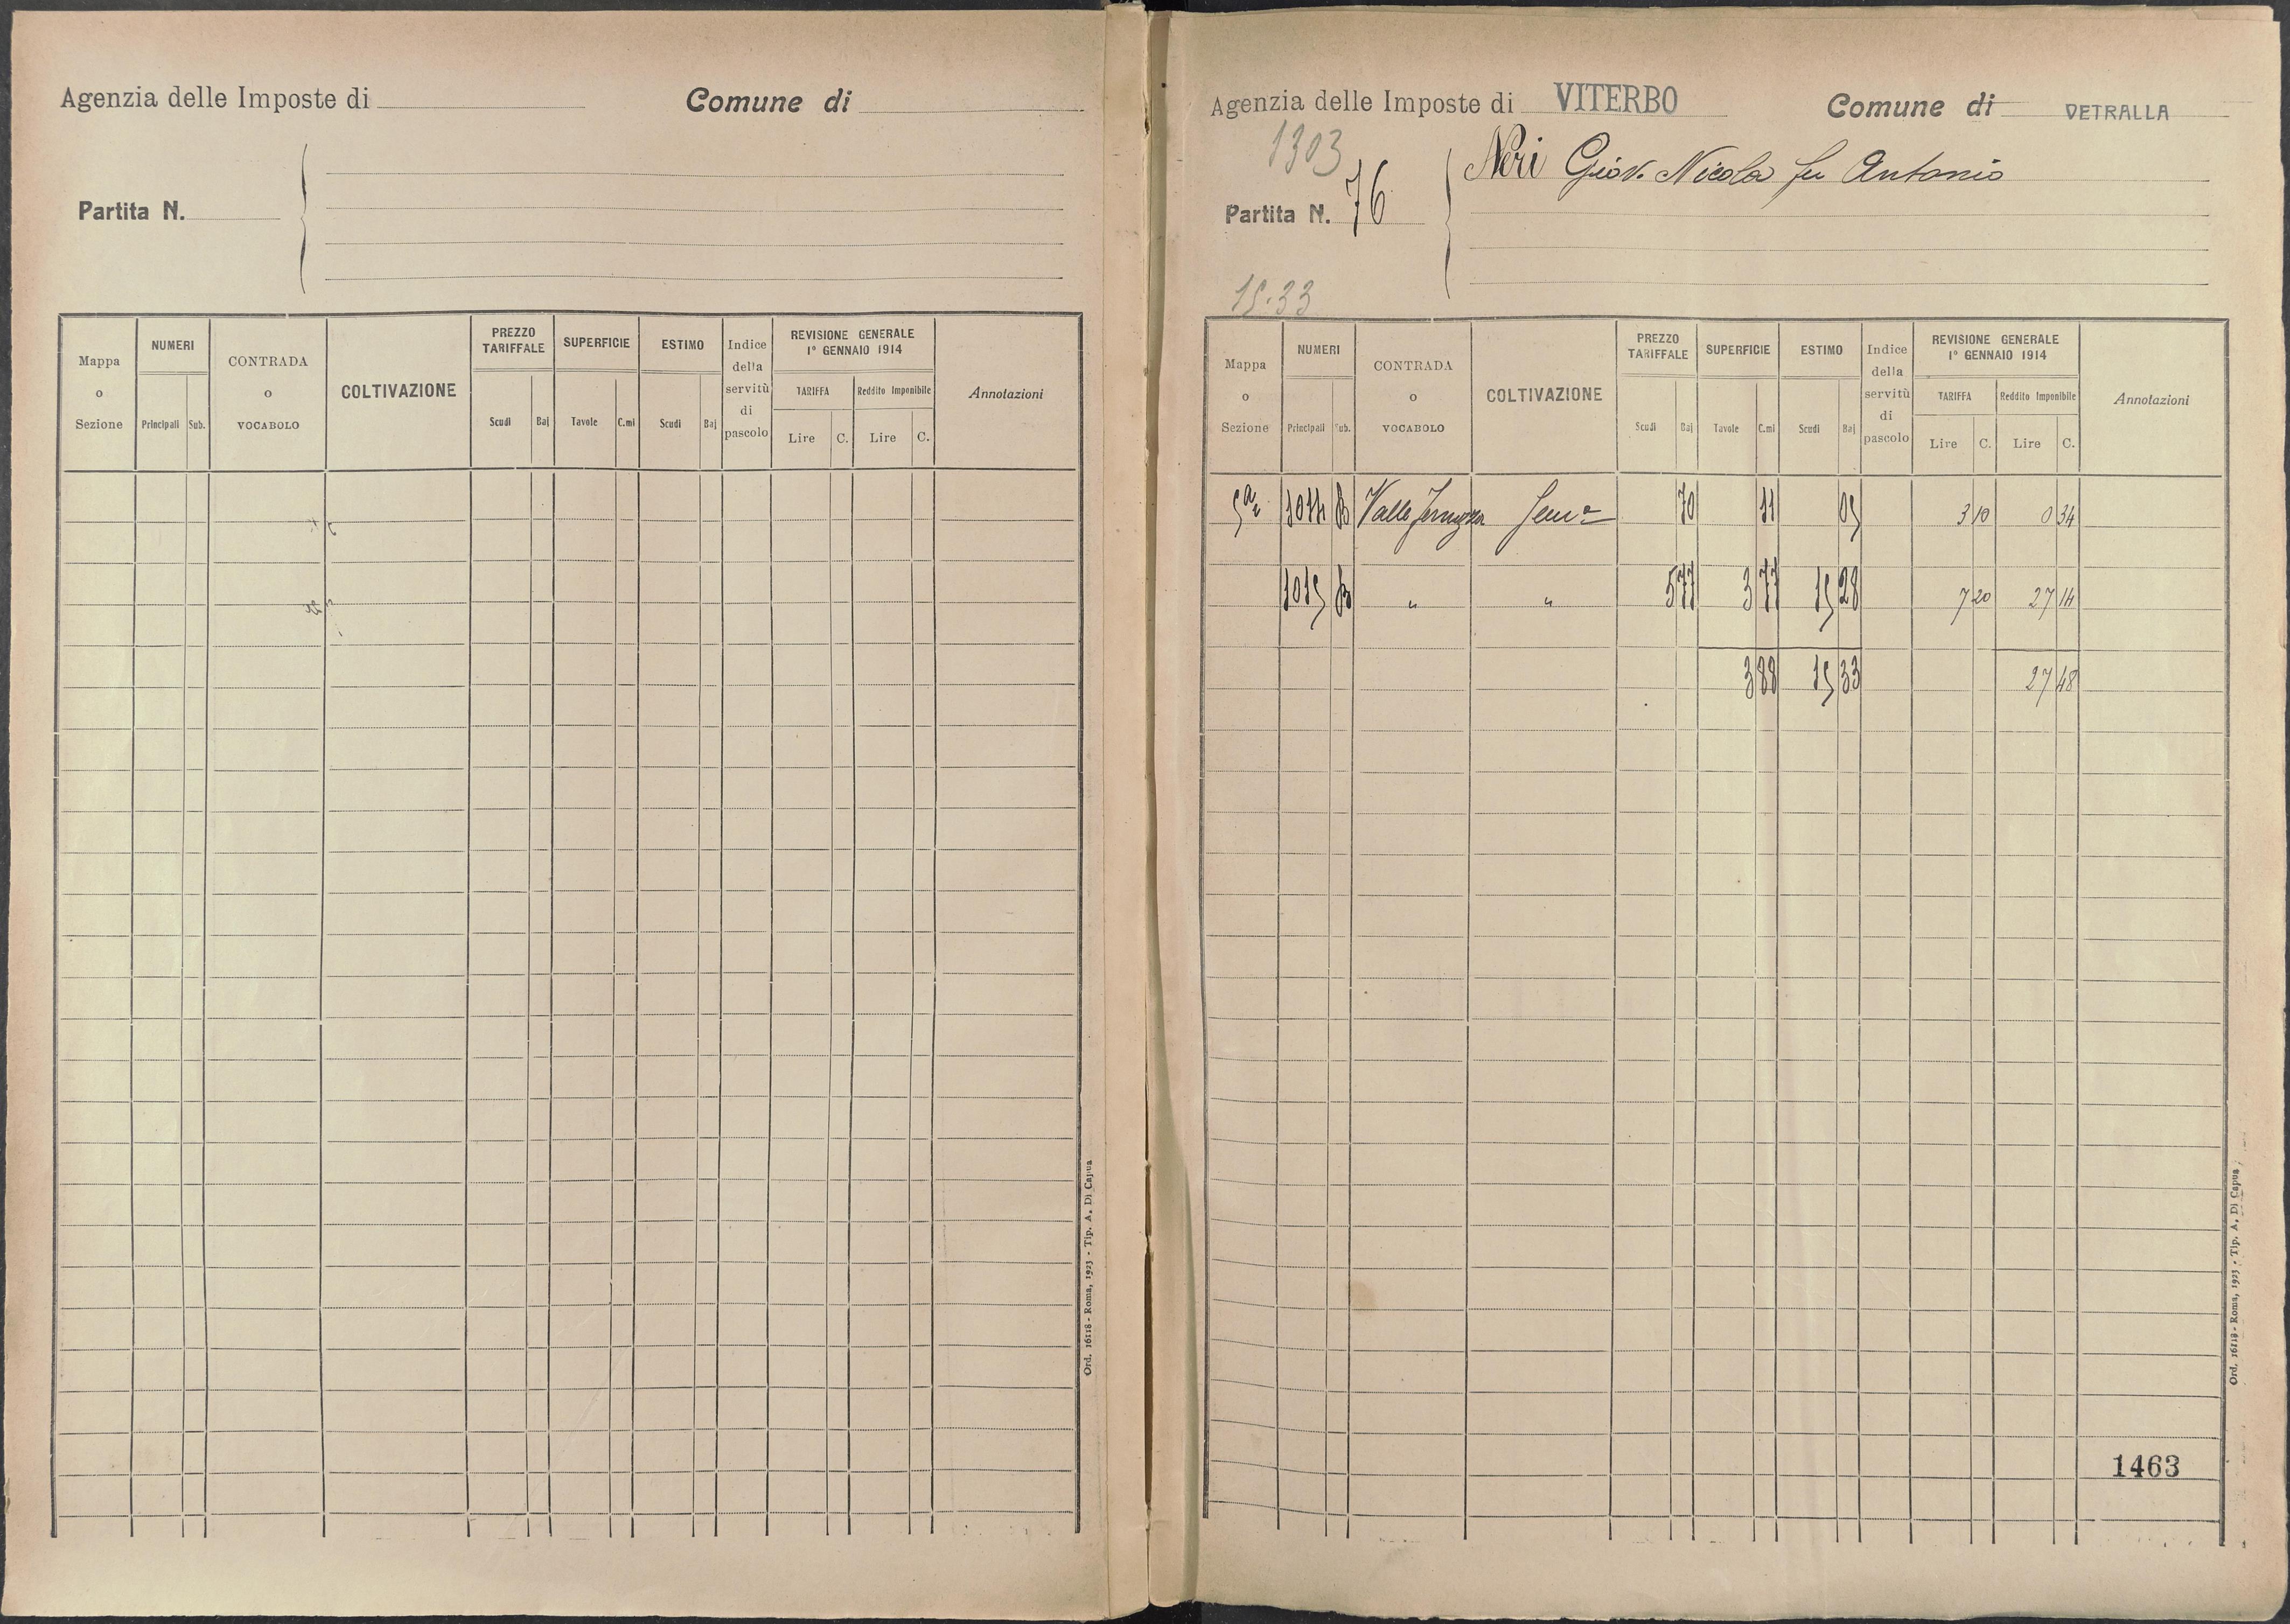 Agenzia delle Imposte di Comune di
Partita N.
Mappa o Sezione NUMERI Principali Sub. CONTRADA o VOCABOLO COLTIVAZIONE PREZZO TARIFFALE Scudi Baj SUPERFICIE Tavole C.mi ESTIMO Scudi Baj Indice della servitù di pascolo REVISIONE GENERALE 1° GENNAIO 1914 TARIFFA Lire C. Reddito Imponibile Lire C. Annotazioni
Ord. 16118 - Roma, 1923 - Tip. A. Di Capua
Agenzia delle Imposte di VITERBO Comune di VETRALLA
1303
Neri Giov. Nicola fu Antonio
Partita N. 76
15.33
Mappa o Sezione NUMERI Principali Sub. CONTRADA o VOCABOLO COLTIVAZIONE PREZZO TARIFFALE Scudi Baj SUPERFICIE Tavole C.mi ESTIMO Scudi Baj Indice della servitù di pascolo REVISIONE GENERALE 1° GENNAIO 1914 TARIFFA Lire C. Reddito Imponibile Lire C. Annotazioni
5a 1014 B Valle Sem° 70 11 05 3 10 0 34
1015 B " " 5 77 3 77 15 28 7 20 27 14
3 88 15 33 27 48
1463
Ord. 16118 - Roma, 1923 - Tip. A. Di Capua